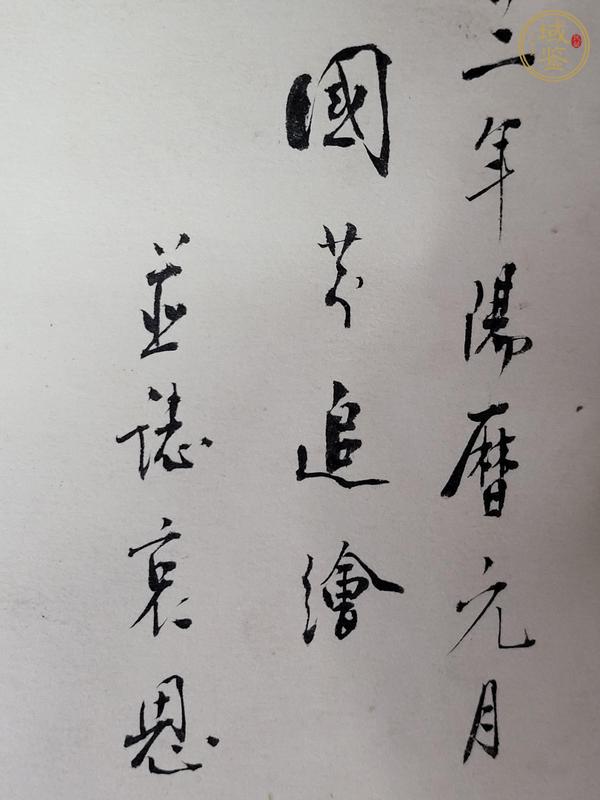 二年陽曆元月
國芬追繪
並誌哀思
域鉴